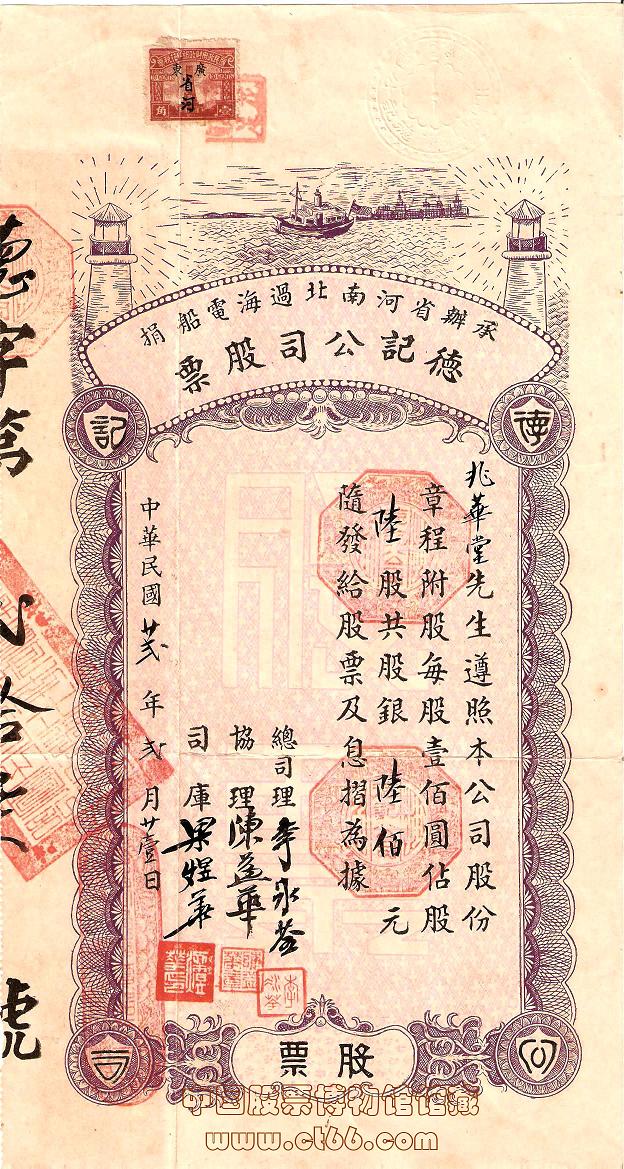 廣東
省河
角 壹
承辦省河南北過海電船捐
德記公司股票
德
記
兆華堂先生遵照本公司股份
章程附股每股壹佰圓佔股
陸股共股銀陸佰元
隨發給股票及息摺為據
總司理李永茶
協理陳益華
司庫梁煜華
中華民國廿弍年弍月廿壹日
德字第
號
公
司
股票
中国股票博物馆馆藏
www.ct66.com